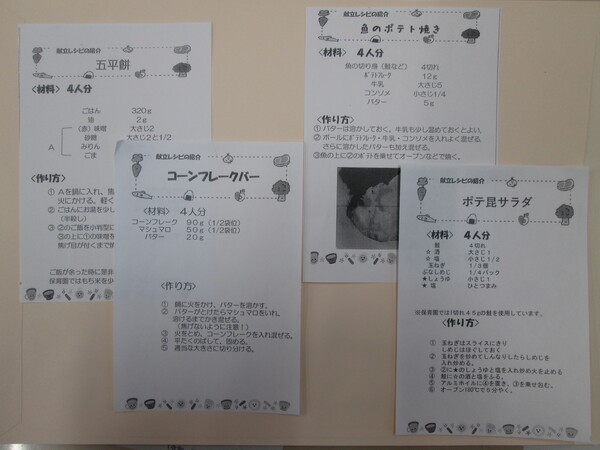 献立レシピの紹介
五平餅
〈材料〉 4人分
ごはん 320g
油 2g
(赤)味噌 大さじ2
砂糖 大さじ2と1/2
A みりん
ごま
〈作り方〉
① Aを鍋に入れ、
火にかける。軽く
② ごはんにお湯を少し
(半殺し)
③ ②のご飯を小判型に
④ ③の上に①の味噌を
焦げ目が付くまで焼
ご飯が余った時に是非
保育園ではもち米を少
献立レシピの紹介
魚のポテト焼き
〈材料〉 4人分
魚の切り身(鮭など) 4切れ
ポテトフレーク 12g
牛乳 大さじ5
コンソメ 小さじ1/4
バター 5g
〈作り方〉
① バターは溶かしておく。牛乳も少し温めておくとよい。
② ボールにポテトフレーク・牛乳・コンソメを入れよく混ぜる。
さらに溶かしたバターも加え混ぜる。
③ 魚の上に②のポテトを乗せてオーブンなどで焼く。
献立レシピの紹介
コーンフレークバー
〈材料〉 4人分
コーンフレーク 90g(1/2袋位)
マシュマロ 50g(1/2袋位)
バター 20g
〈作り方〉
① 鍋に火をかけ、バターを溶かす。
② バターがとけたらマシュマロをいれ、
溶けるまでかき混ぜる。
(焦げないように注意!)
③ 火をとめ、コーンフレークを入れ混ぜる。
④ 平たくのばして、固める。
⑤ 適当な大きさに切り分ける。
献立レシピの紹介
ポテ昆サラダ
〈材料〉 4人分
鮭 4切れ
☆ 酒 大さじ1
☆ 塩 小さじ1/2
玉ねぎ 1/3個
ぶなしめじ 1/4パック
★しょうゆ 小さじ1
★ 塩 ひとつまみ
※保育園では1切れ45gの鮭を使用しています。
〈作り方〉
① 玉ねぎはスライスにきり
しめじはほぐしておく
② 玉ねぎを炒めてしんなりしたらしめじを
入れ炒める。
③ ②に★のしょうゆと塩を入れ炒め火を止める
④ 鮭に☆の酒と塩をふる。
⑤ アルミホイルに④を置き、③を乗せ包む。
⑥ オーブン180℃で5分やく。